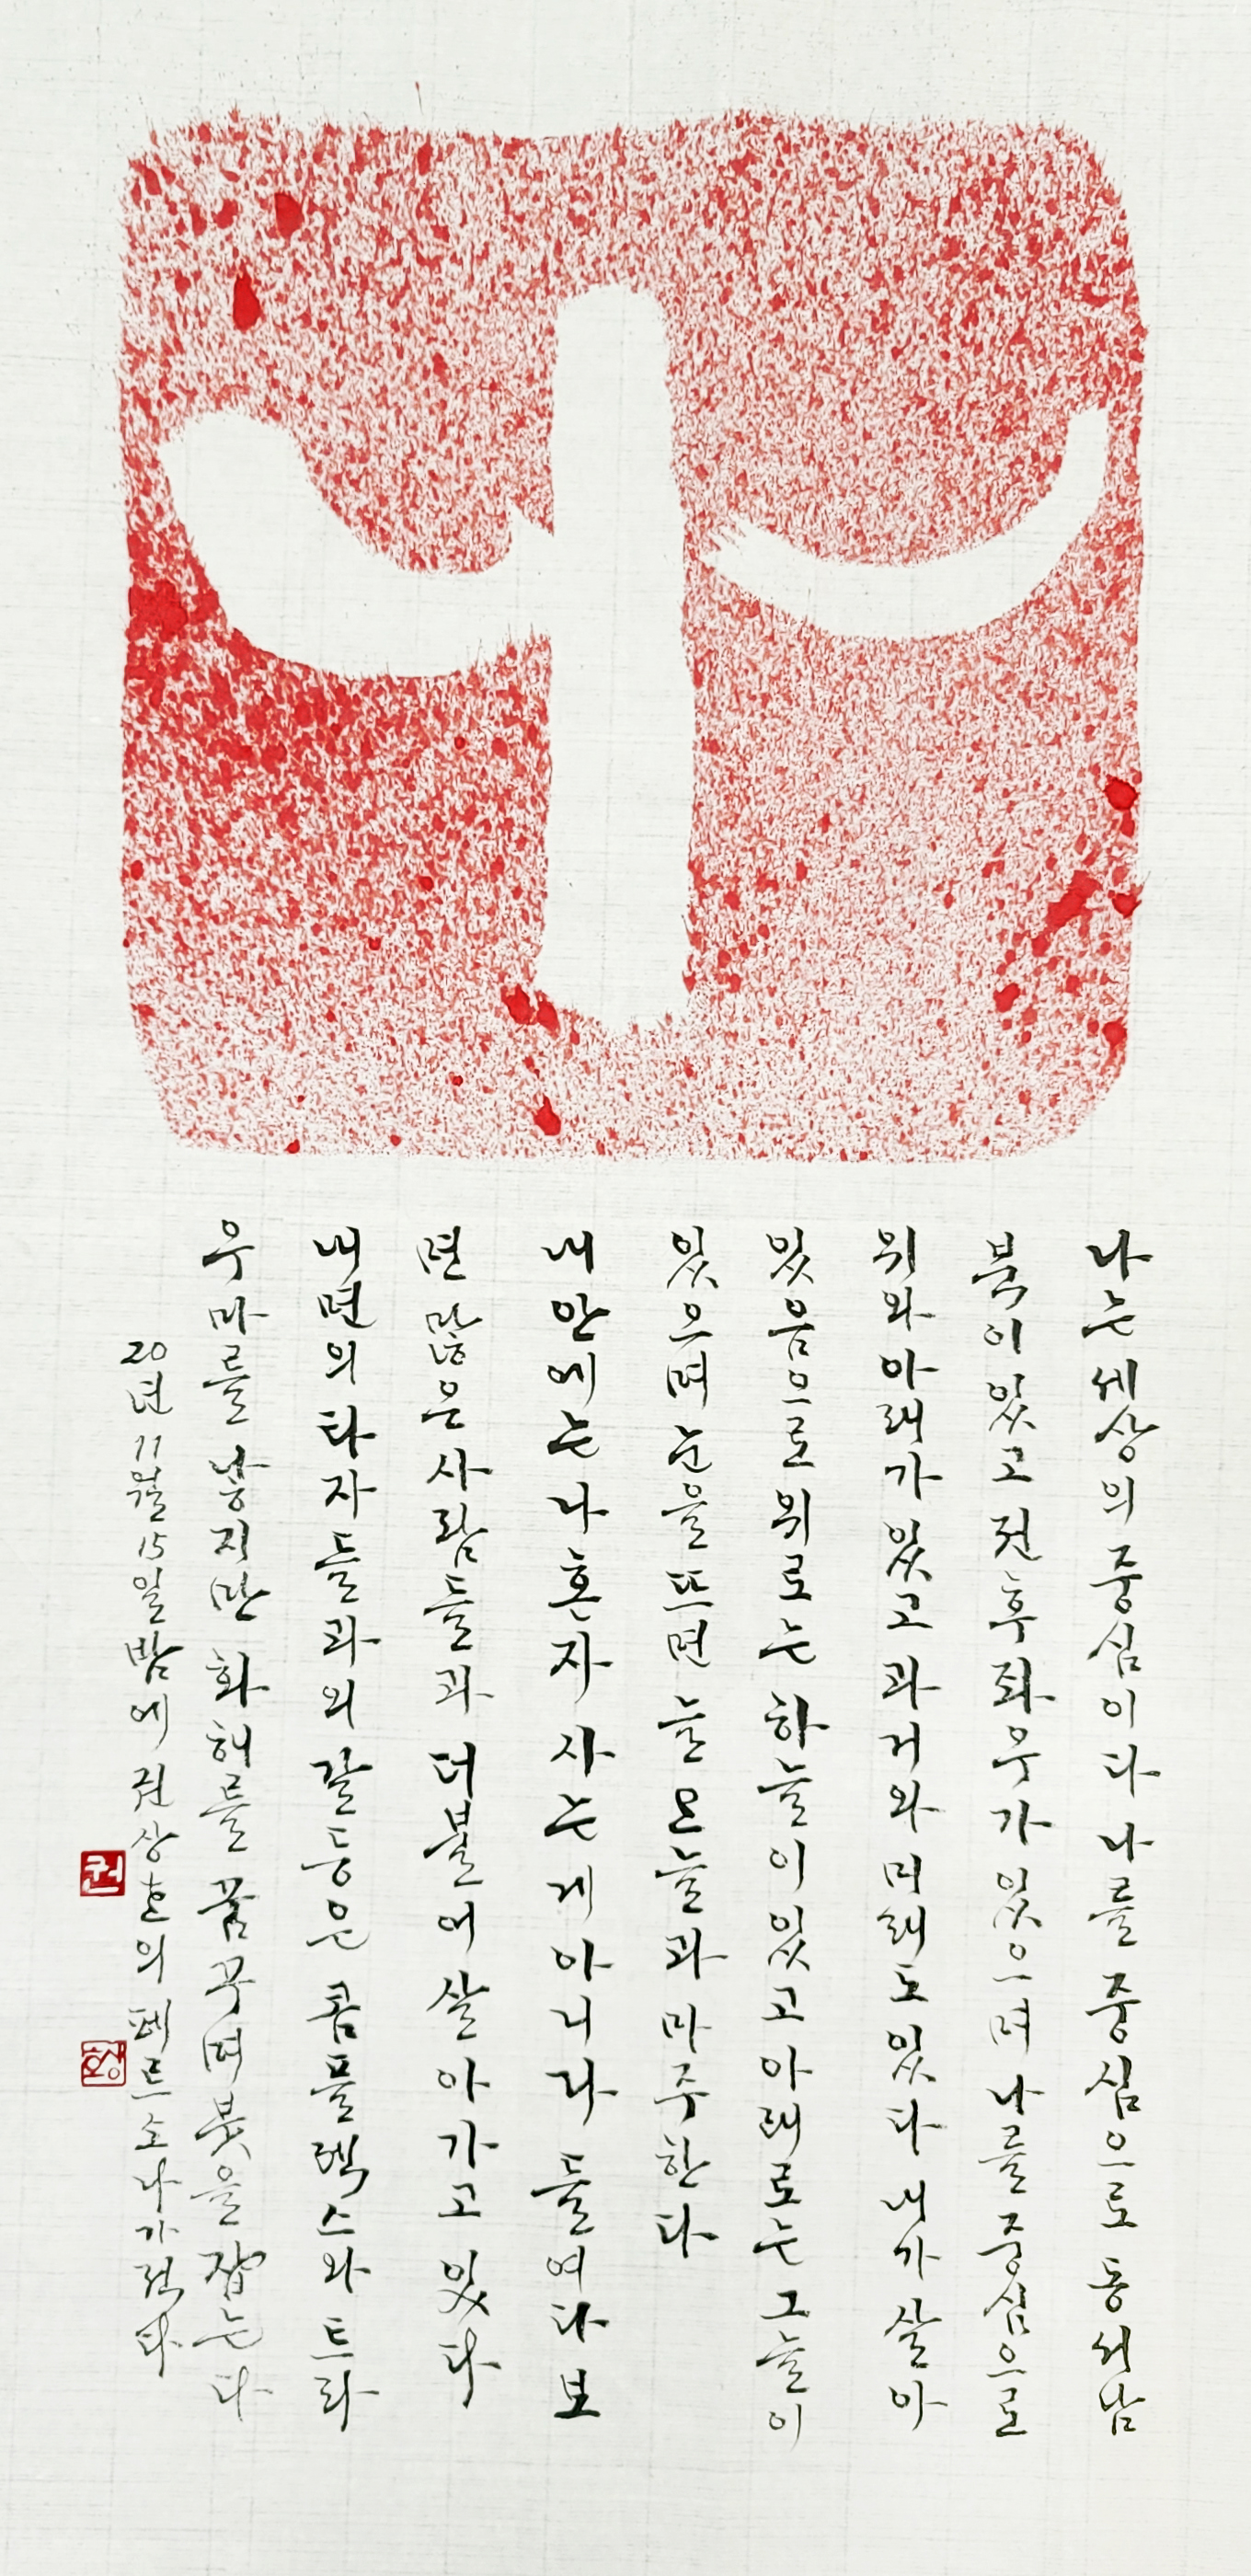 나는 세상의 중심이다 나를 중심으로 동서남
북이 있고 전후좌우가 있으며 나를 중심으로
위와 아래가 있고 과거와 미래도 있다 내가 살아
있음으로 위로는 하늘이 있고 아래로는 그늘이
있으며 눈을 뜨면 늘 오늘과 마주한다
내 안에는 나 혼자 사는 게 아니다 들여다보
면 많은 사람들과 더불어 살아가고 있다
내면의 타자들과의 갈등은 콤플렉스와 트라
우마를 낳지만 화해를 꿈꾸며 붓을 잡는다
20년 11월 15일 밤에 권상호의 페르소나가 적다
권
상호